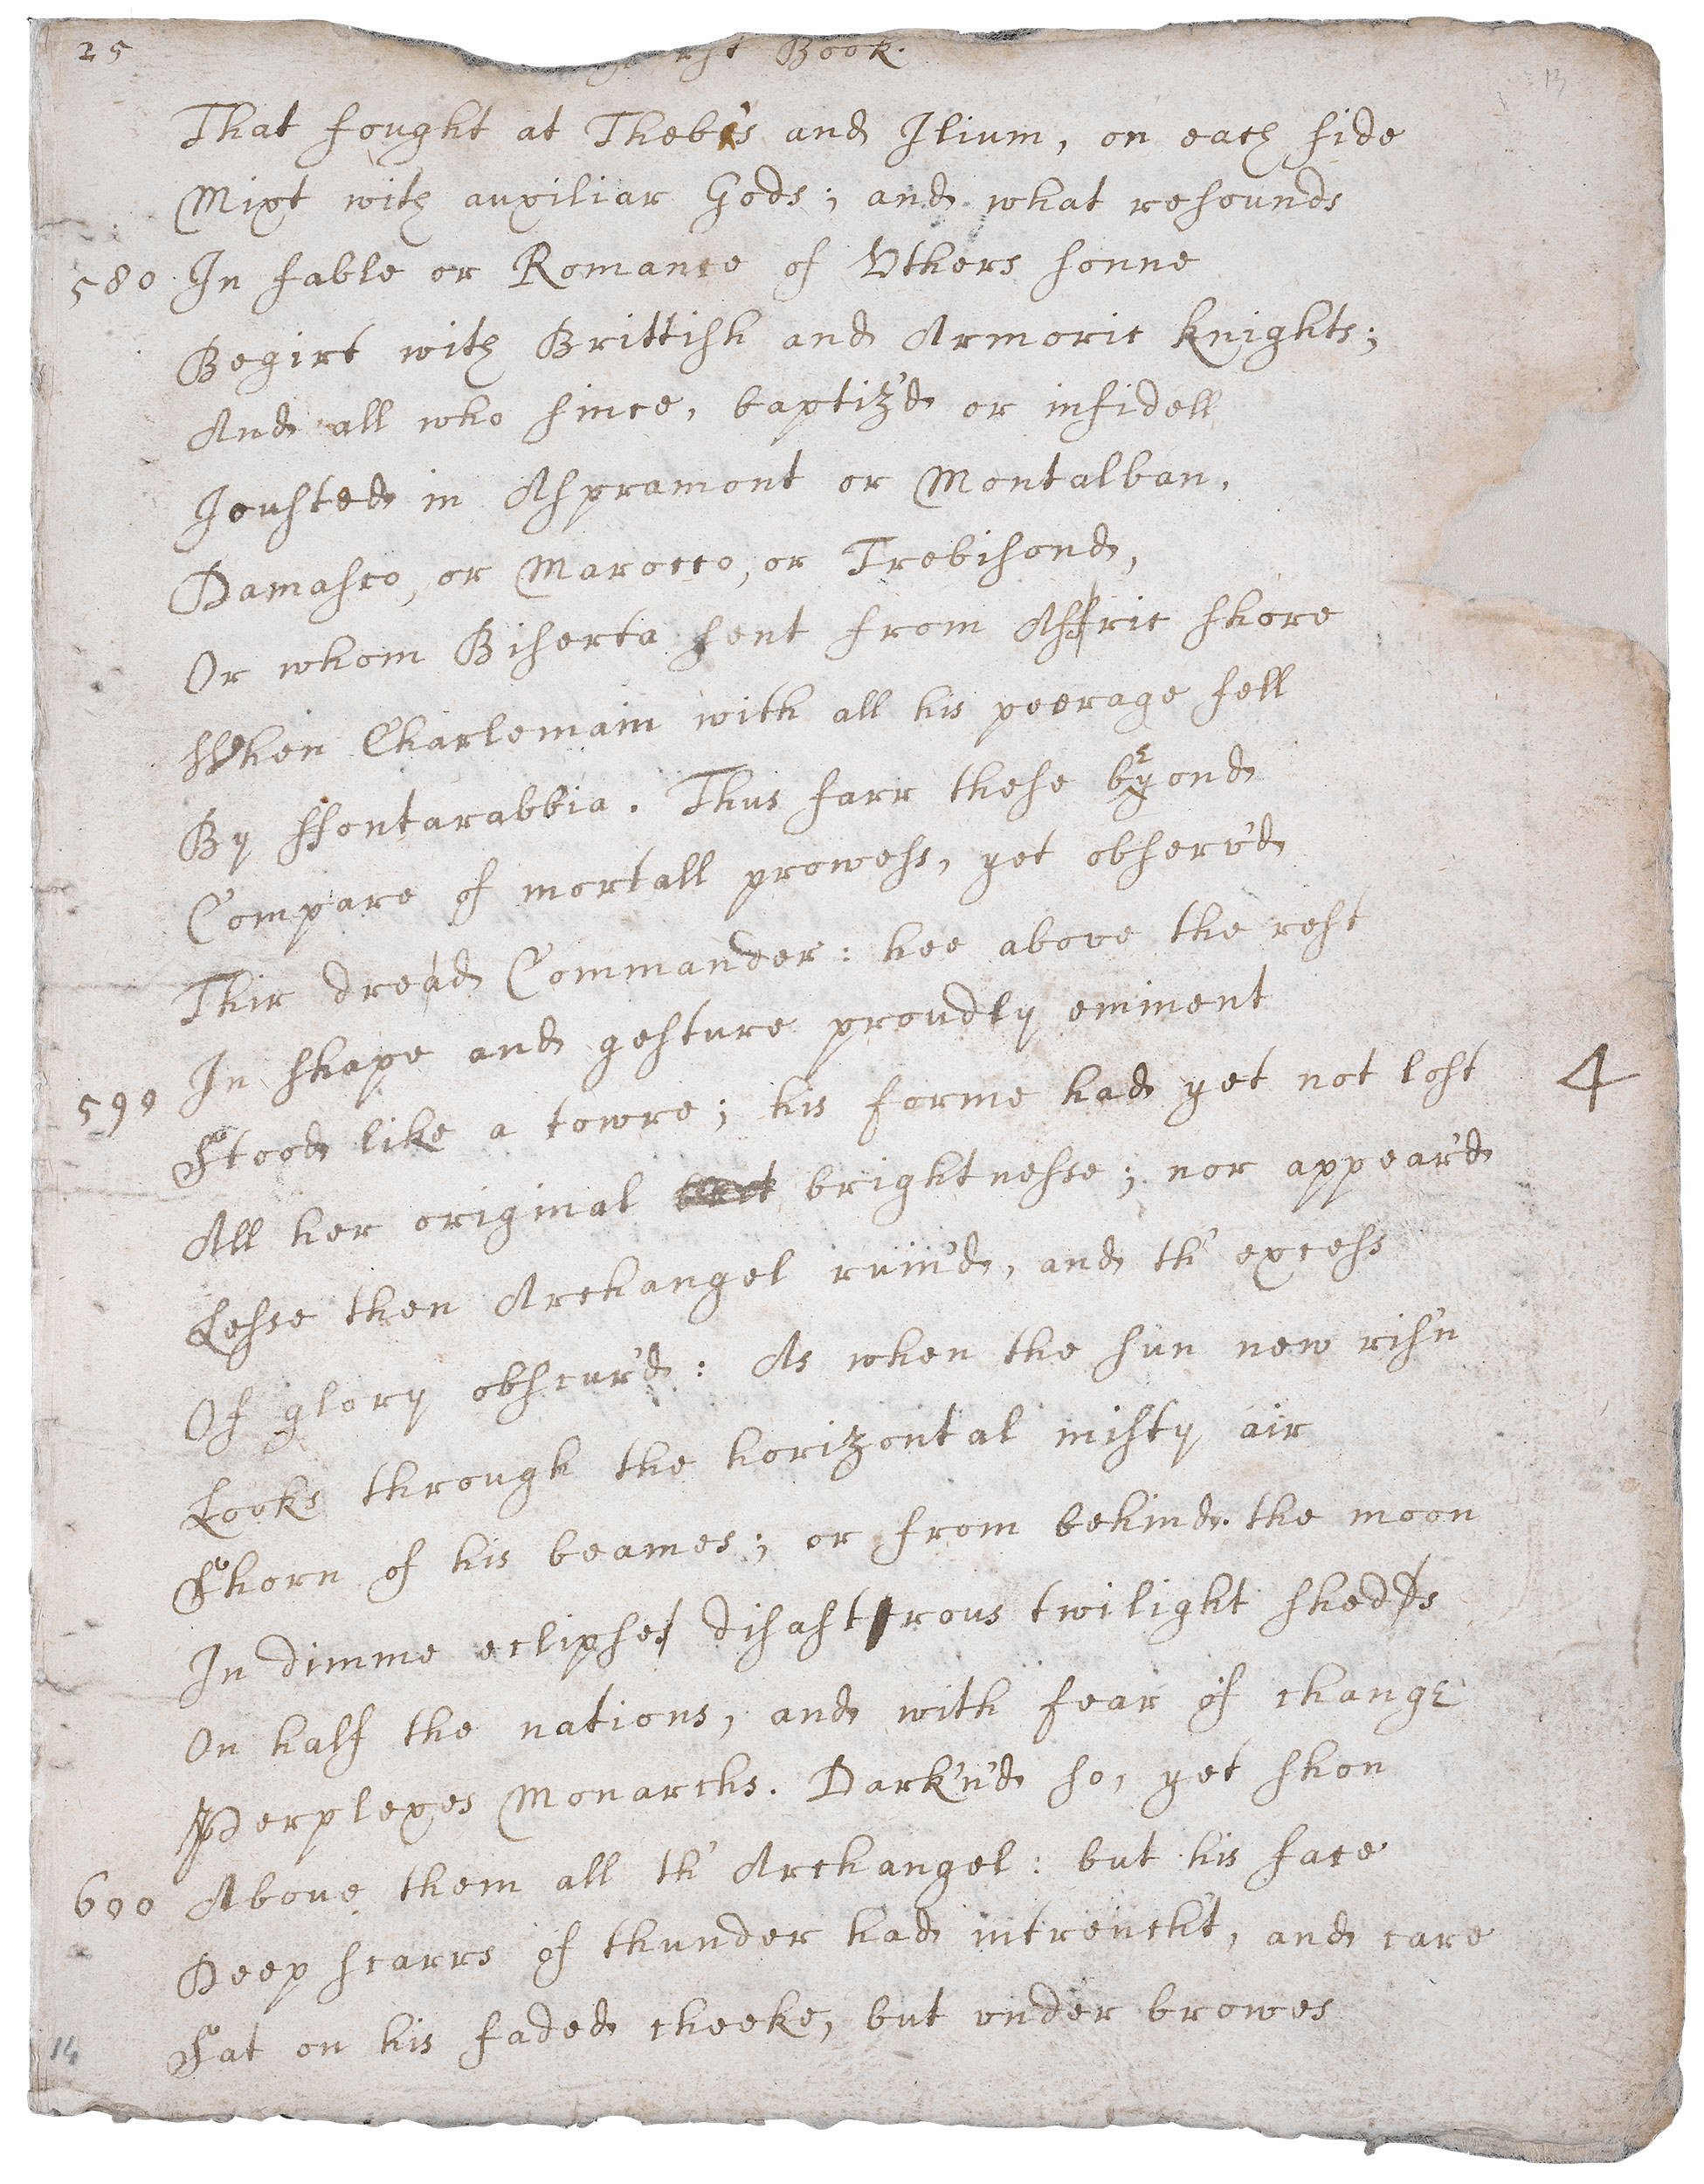 25 Book.
That fought at Thebes and Ilium, on each side
Mixt with auxiliar Gods; and what resounds
580 In fable or Romance of Uthers sonne
Begirt with Brittish and Armoric knights;
And all who since, baptiz'd or infidell
Iousted in Aspramont or Montalban,
Damasco, or Marocco, or Trebisond,
Or whom Biserta sent from Affric shore
When Charlemain with all his peerage fell
By ffontarabbia. Thus farr these beyond
Compare of mortall prowess, yet observ'd
Thir dread Commander: hee above the rest
In shape and gesture proudly eminent
590 Stood like a towre; his forme had yet not lost 4
All her original brightnesse; nor appear'd
Lesse then Archangel ruin'd, and th' excess
Of glory obscur'd: As when the sun new ris'n
Looks through the horizontal misty air
Shorn of his beames; or from behind the moon
In dimme eclipse disastrous twilight sheds
On half the nations, and with fear of change
Perplexes Monarchs. Dark'n'd so, yet shon
600 Above them all th' Archangel: but his face
Deep scarrs of thunder had intrencht, and care
Sat on his faded cheeke, but under browes
14